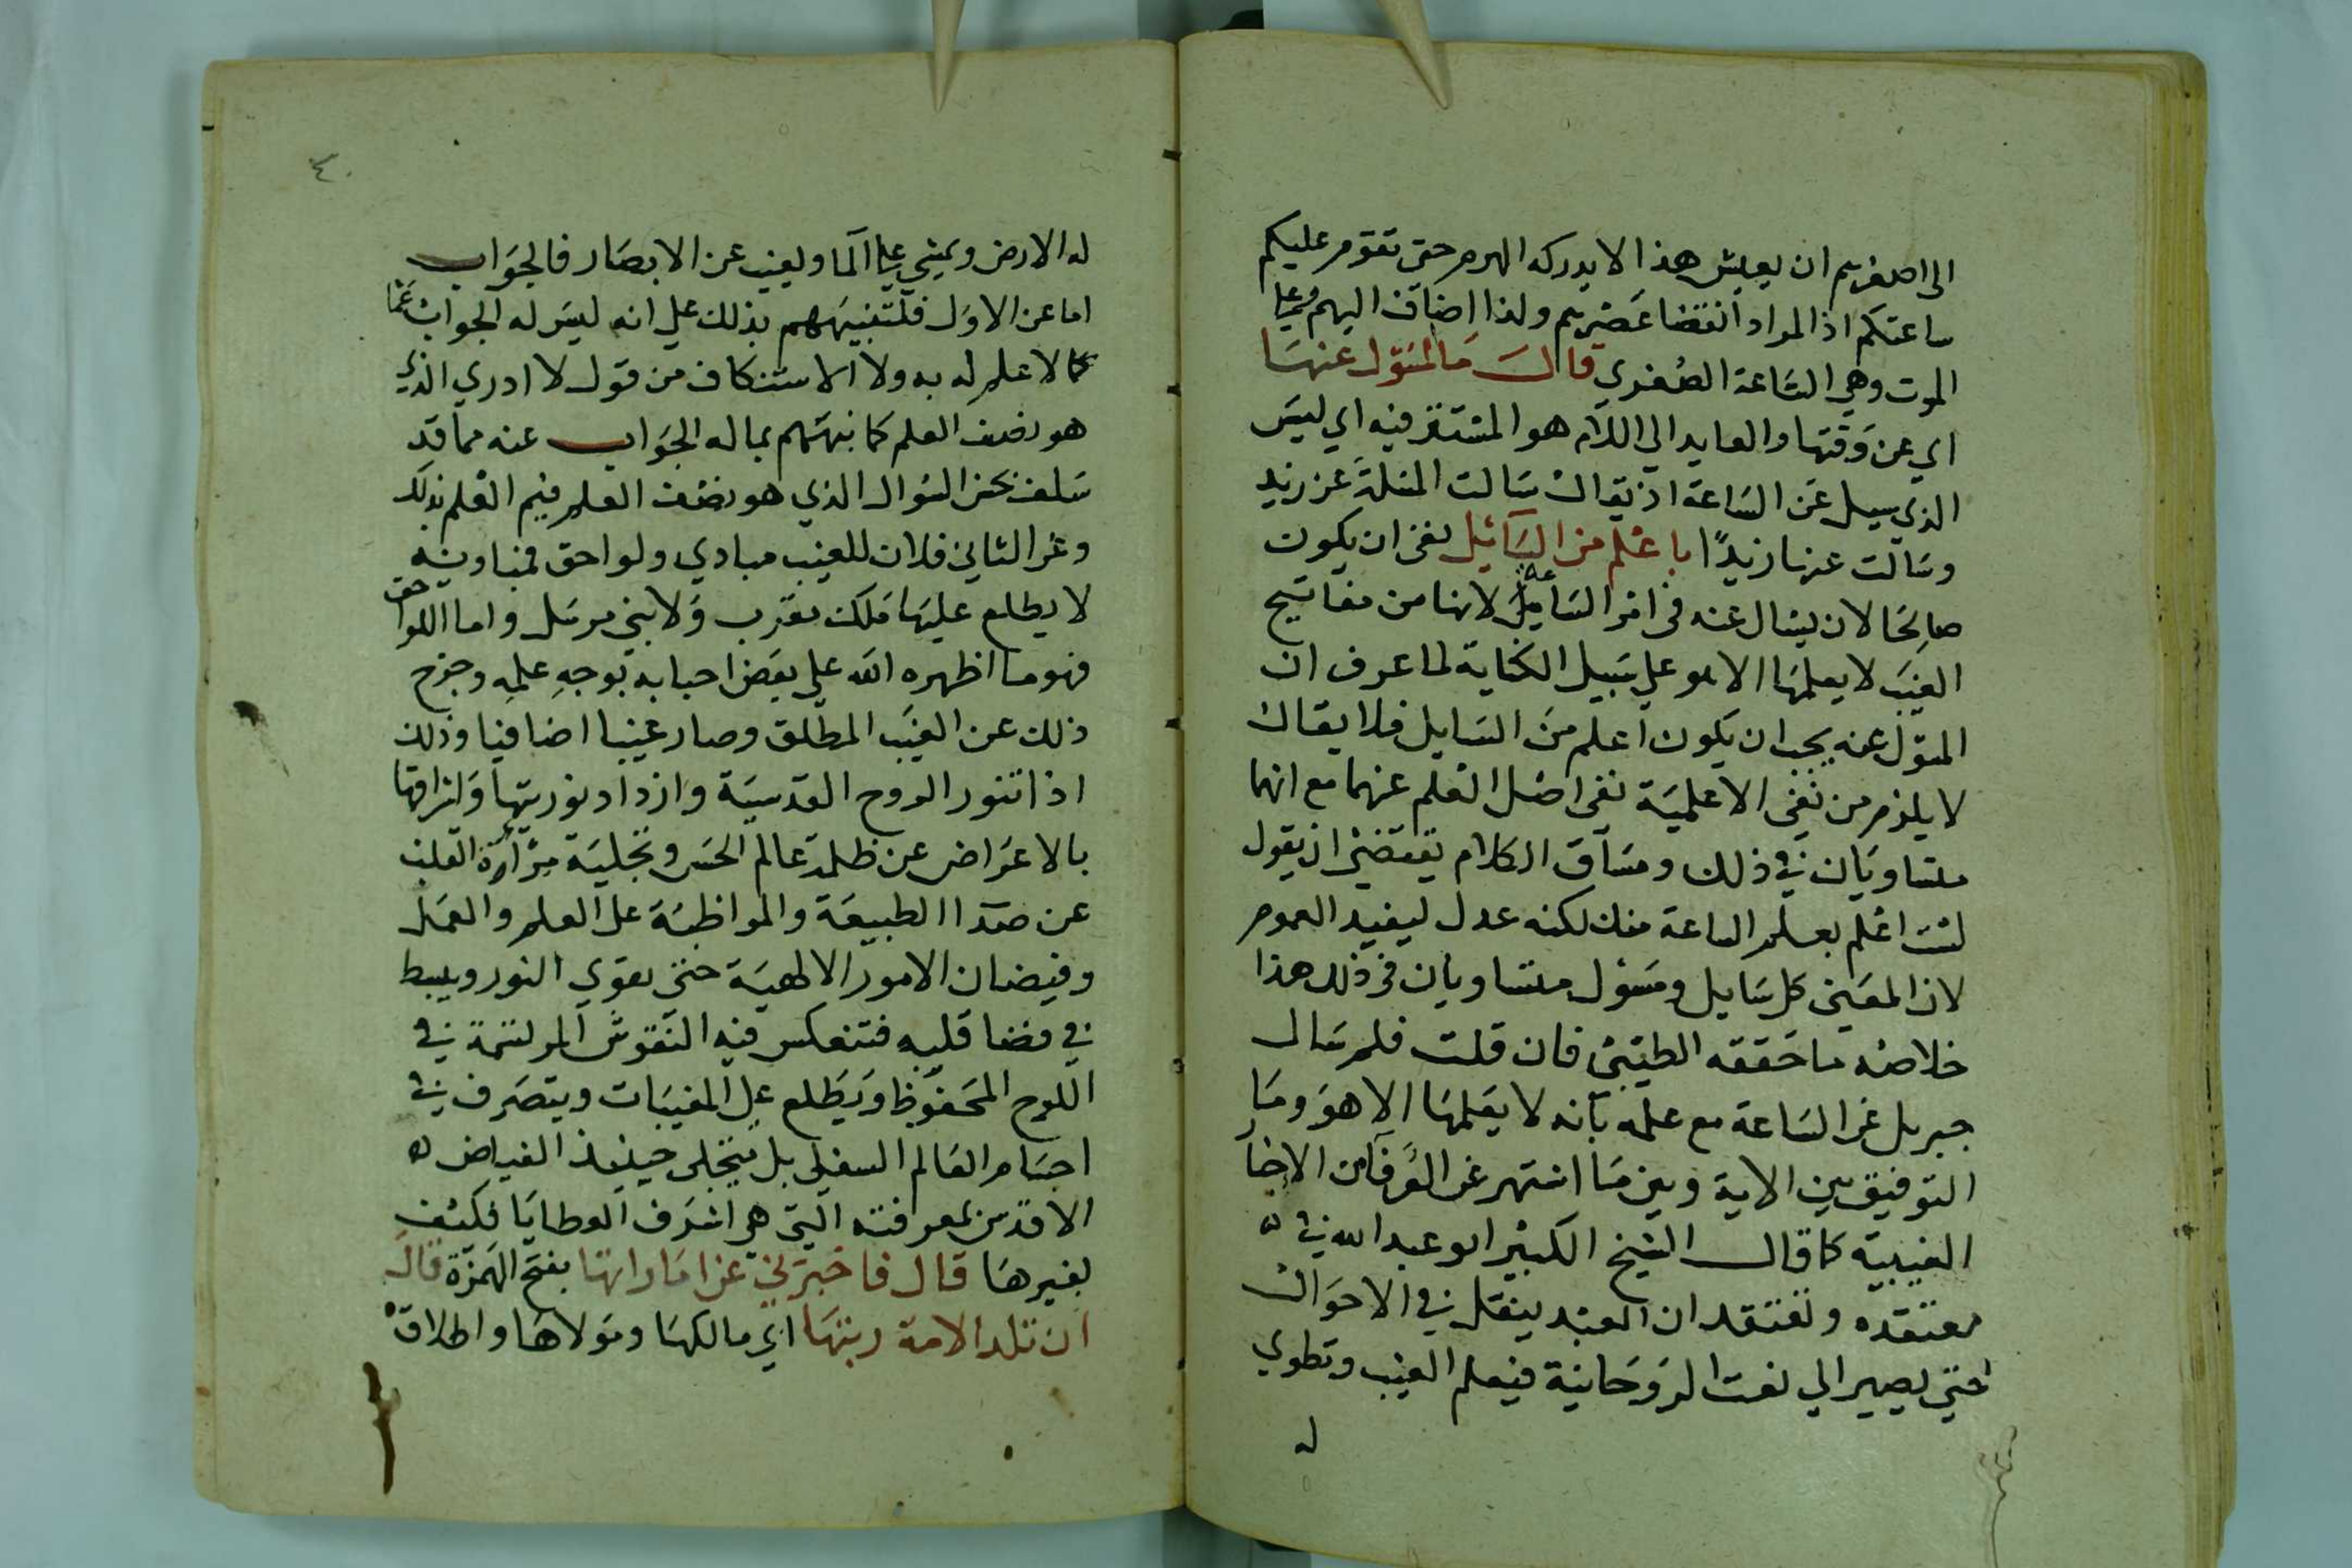 الى اصغرهم ان يعيش هذا لا يدركه الهرم حتى تقوم عليكم
ساعتكم اذ المراد انقضا عصرهم ولذا اضاف اليهم
الموت وهي الساعة الصغري قال ما المسؤل عنها
اي عن وقتها والعايد الي اللام هو المستتر فيه اي ليس
الذي سيل عن الساعة اذ يقال سالت المسلة عن زيد
وسالت عنها زيدًا باعلم من السائيل نفى ان يكون
صالحا لان يسال عنه في امر الساعة لانها من مفاتيح
الغيب لا يعلمها الا هو علي سبيل الكناية لما عرف ان
المسؤل عنه يجب ان يكون اعلم من السايل فلا يقال
لا يلزم من نفي الاعلمية نفي اصل العلم عنهما مع انهما
متساويان في ذلك ومساق الكلام يقتضي ان يقول
لست اعلم بعلم الساعة منك لكنه عدل ليفيد العموم
لان المعنى كل سايل ومسؤل متساويان في ذلك هذا
خلاصه ما حققه الطيبي فان قلت فلم سال
جبريل عن الساعة مع علمه بانه لا يعلمها الا هو وما
التوفيق بين الاية وبين ما اشتهر عن العرفا من الاخبار
الغيبية كما قال الشيخ الكبير ابو عبد الله في
معتقده ونعتقد ان العبد ينقل في الاحوال
حتي يصير الي نعت الروحانية فيعلم الغيب وتطوي
له
٤٠
له الارض ويمشي علي الما ويغيب عن الابصار فالجواب
اما عن الاول فلتنبيههم بذلك علي انه ليس له الجواب عما
لا علم له به ولا الاستنكاف من قول لا ادري الذي
هو نصف العلم كما نبههم بما له الجواب عنه مما قد
سلف بحسن السؤال الذي هو نصف العلم فيتم العلم بذلك
وعن الثاني فلان للغيب مبادي ولواحق فمباديه
لا يطلع عليها ملك مقرب ولا نبي مرسل واما اللواحق
فهو ما اظهره الله علي بعض احبابه بوجه علمه وخرج
ذلك عن الغيب المطلق وصار غيبا اضافيا وذلك
اذا تنور الروح القدسية وازداد نوريتها واشراقها
بالاعراض عن ظلمة عالم الحس وتجلية مرآة القلب
عن صدا الطبيعة والمواظبة على العلم والعمل
وفيضان الامور الالهية حتى يقوي النور وينبسط
في فضا قلبه فتنعكس فيه النقوش المرتسمة في
اللوح المحفوظ ويطلع على المغيبات ويتصرف في
اجسام العالم السفلي بل يتجلى حينيذ الفياض
الاقدس بمعرفته التي هي اشرف العطايا فكيف
بغيرها قال فاخبرني عن اماراتها بفتح الهمزة قال
ان تلد الامة ربتها اي مالكها ومولاها واطلاق